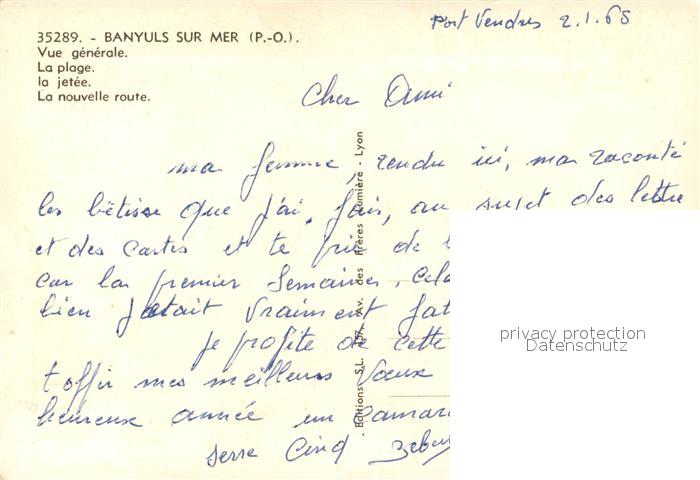 Port Vendres 2.1.65
35289. - BANYULS SUR MER (P.-O.).
Vue générale.
La plage.
la jetée.
La nouvelle route.
Cher Ami
ma femme, rendu ici, ma raconté
les bêtise que j'ai fais, au sujet des lettre
et des cartes et te prie de
car la premier Semaines, cela
bien j'etait vraiment fat
je profite de cette
t'offir mes meilleurs Vœux
heureux année un Camara
serre Cinq
Editions S.L. Av. des Frères Lumière - Lyon
privacy protection
Datenschutz